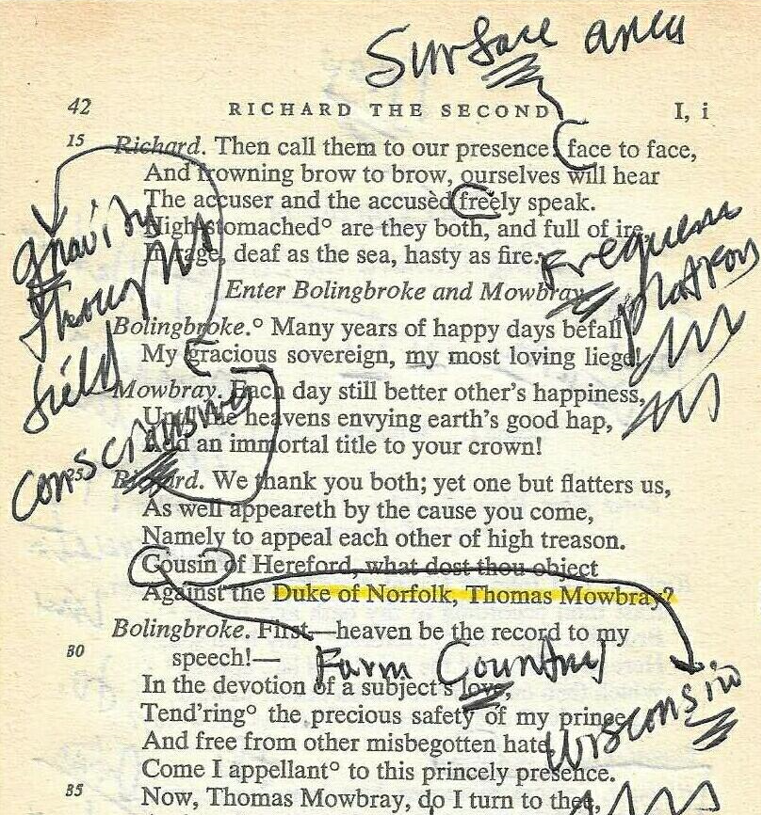 Surface area
42 RICHARD THE SECOND I, i
15 Richard. Then call them to our presence: face to face,
And frowning brow to brow, ourselves will hear
The accuser and the accusèd freely speak.
High-stomached° are they both, and full of ire,
In rage, deaf as the sea, hasty as fire.
gravity
thought
field
Enter Bolingbroke and Mowbray.
photons
Bolingbroke.° Many years of happy days befall
My gracious sovereign, my most loving liege!
Mowbray. Each day still better other's happiness,
Until the heavens envying earth's good hap,
Add an immortal title to your crown!
Richard. We thank you both; yet one but flatters us,
As well appeareth by the cause you come,
Namely to appeal each other of high treason.
Cousin of Hereford, what dost thou object
Against the Duke of Norfolk, Thomas Mowbray?
Bolingbroke. First—heaven be the record to my
80 speech!—
Farm Country
In the devotion of a subject's love,
Wisconsin
Tend'ring° the precious safety of my prince,
And free from other misbegotten hate,
Come I appellant° to this princely presence.
85 Now, Thomas Mowbray, do I turn to thee,